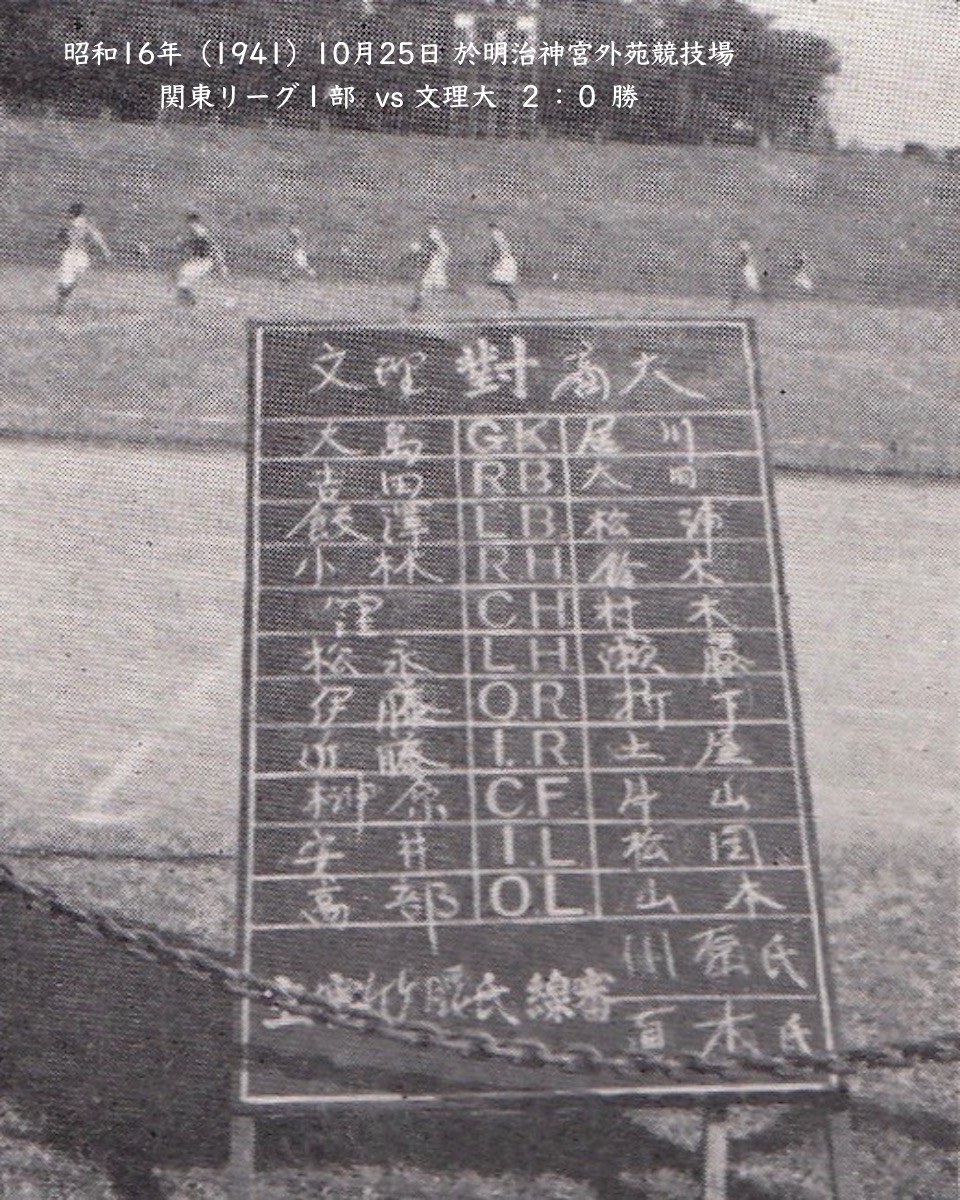 昭和16年（1941）10月25日 於明治神宮外苑競技場
関東リーグ1部 vs 文理大 2：0 勝
文理 對 商大
大島 GK 尾川
吉田 RB 大田
餃澤 L.B. 松浦
小林 RH 鈴木
窪 C.H 村木
松永 LH 瀬藤
伊藤 O.R 折下
近藤 I.R 土屋
榊原 C.F. 片山
安井 I.L 松岡
高部 O.L 山本
川 氏
主審 竹腰氏 線審
木氏